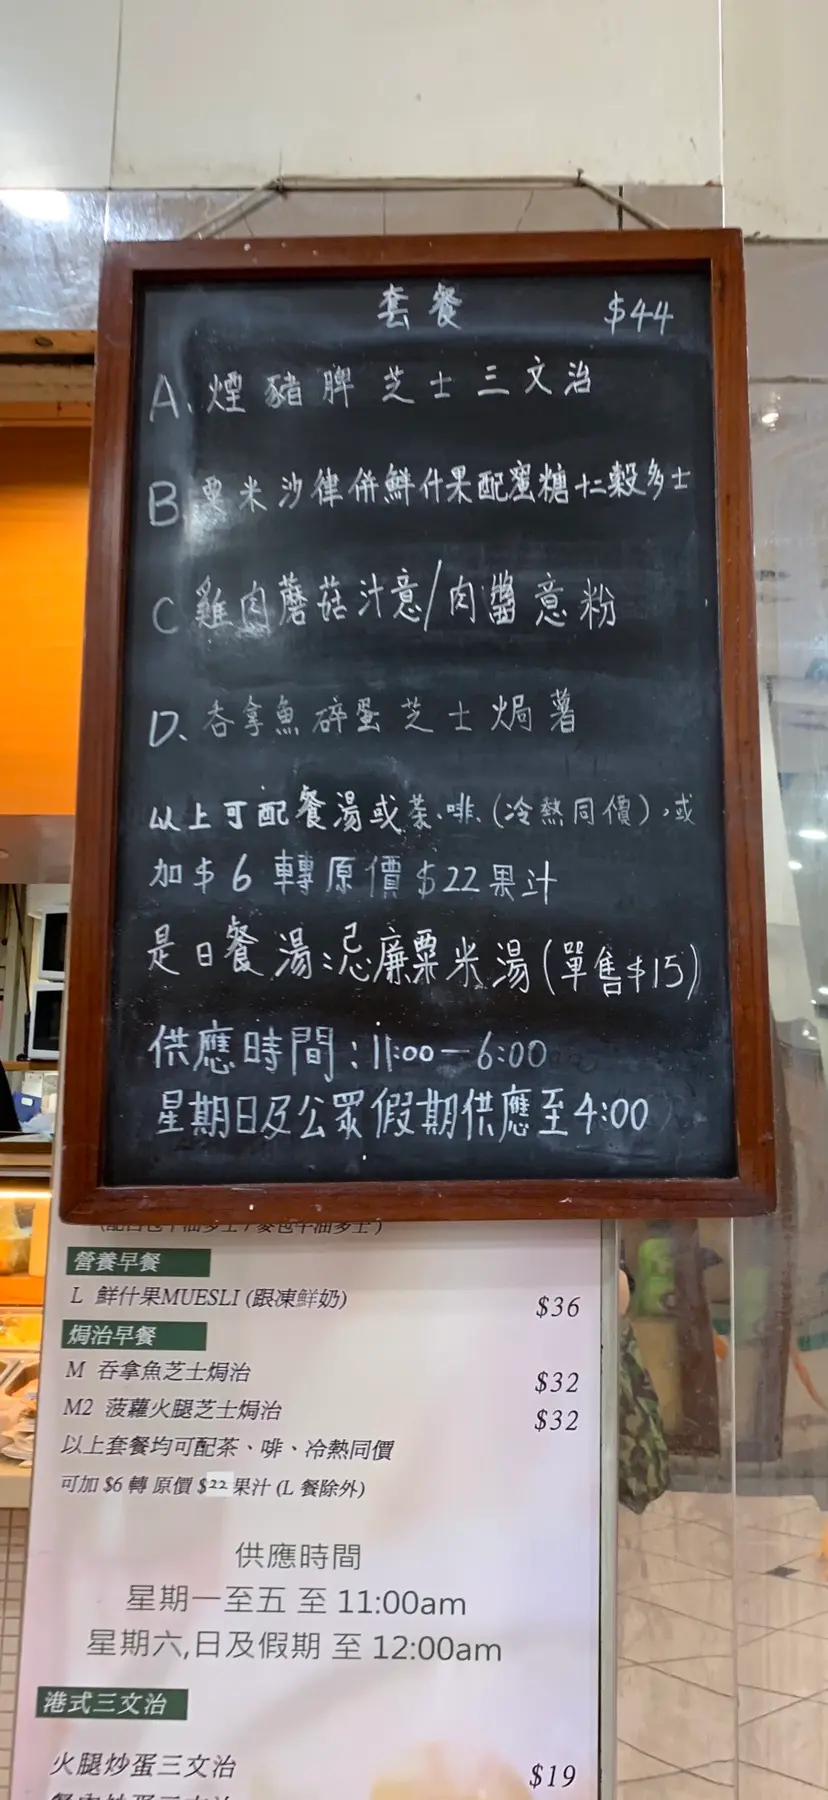 套餐 $44
A、煙豬脾芝士三文治
B 粟米沙律併鮮什果配蜜糖十二穀多士
C 雞肉蘑菇汁意/肉醬意粉
D、吞拿魚碎蛋芝士焗薯
以上可配餐湯或茶、啡、(冷熱同價),或
加$6轉原價$22果汁
是日餐湯:忌廉粟米湯(單售$15)
供應時間:11:00—6:00
星期日及公眾假期供應至4:00
營養早餐
L 鮮什果MUESLI (跟凍鮮奶) $36
焗治早餐
M 吞拿魚芝士焗治 $32
M2 菠蘿火腿芝士焗治 $32
以上套餐均可配茶、啡、冷熱同價
可加 $6 轉 原價 $22 果汁 (L 餐除外)
供應時間
星期一至五 至 11:00am
星期六,日及假期 至 12:00am
港式三文治
火腿炒蛋三文治 $19